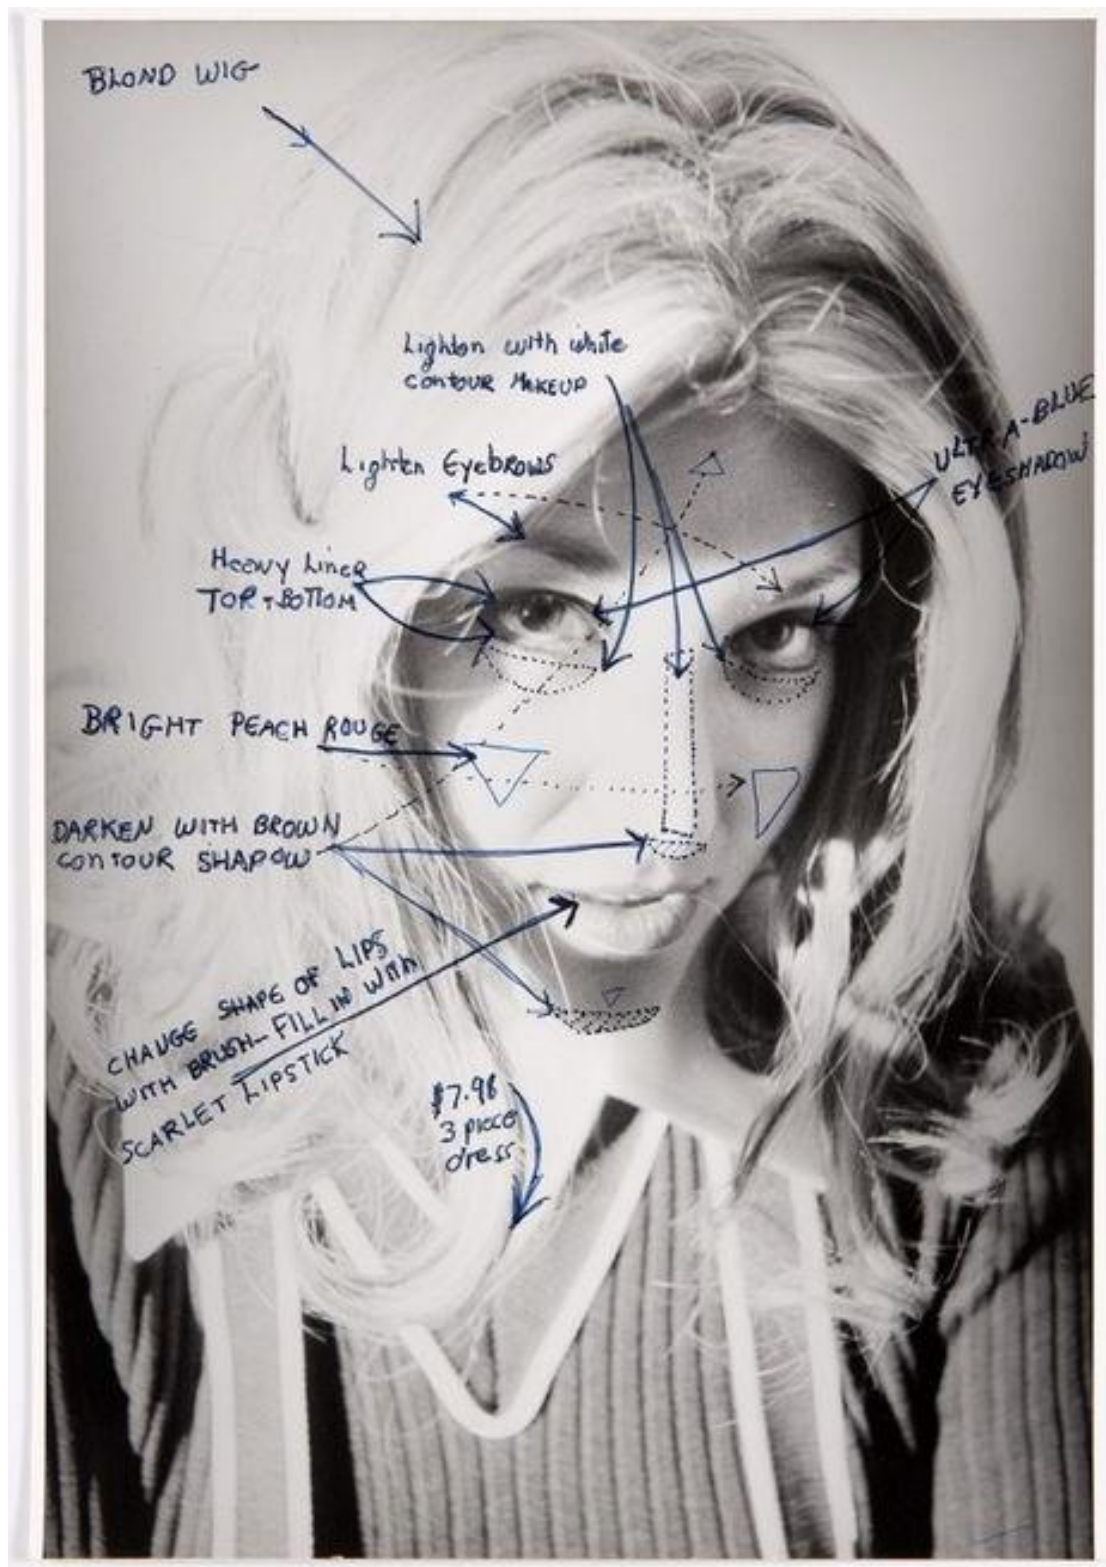 BLOND WIG
Lighten with white
contour MAKEUP
ULTRA-BLUE
EYESHADOW
Lighten Eyebrows
Heavy Liner
TOP + BOTTOM
BRIGHT PEACH ROUGE
DARKEN WITH BROWN
contour SHADOW
CHANGE SHAPE OF LIPS
WITH BRUSH - FILL IN WITH
SCARLET LIPSTICK
$7.98
3 piece
dress